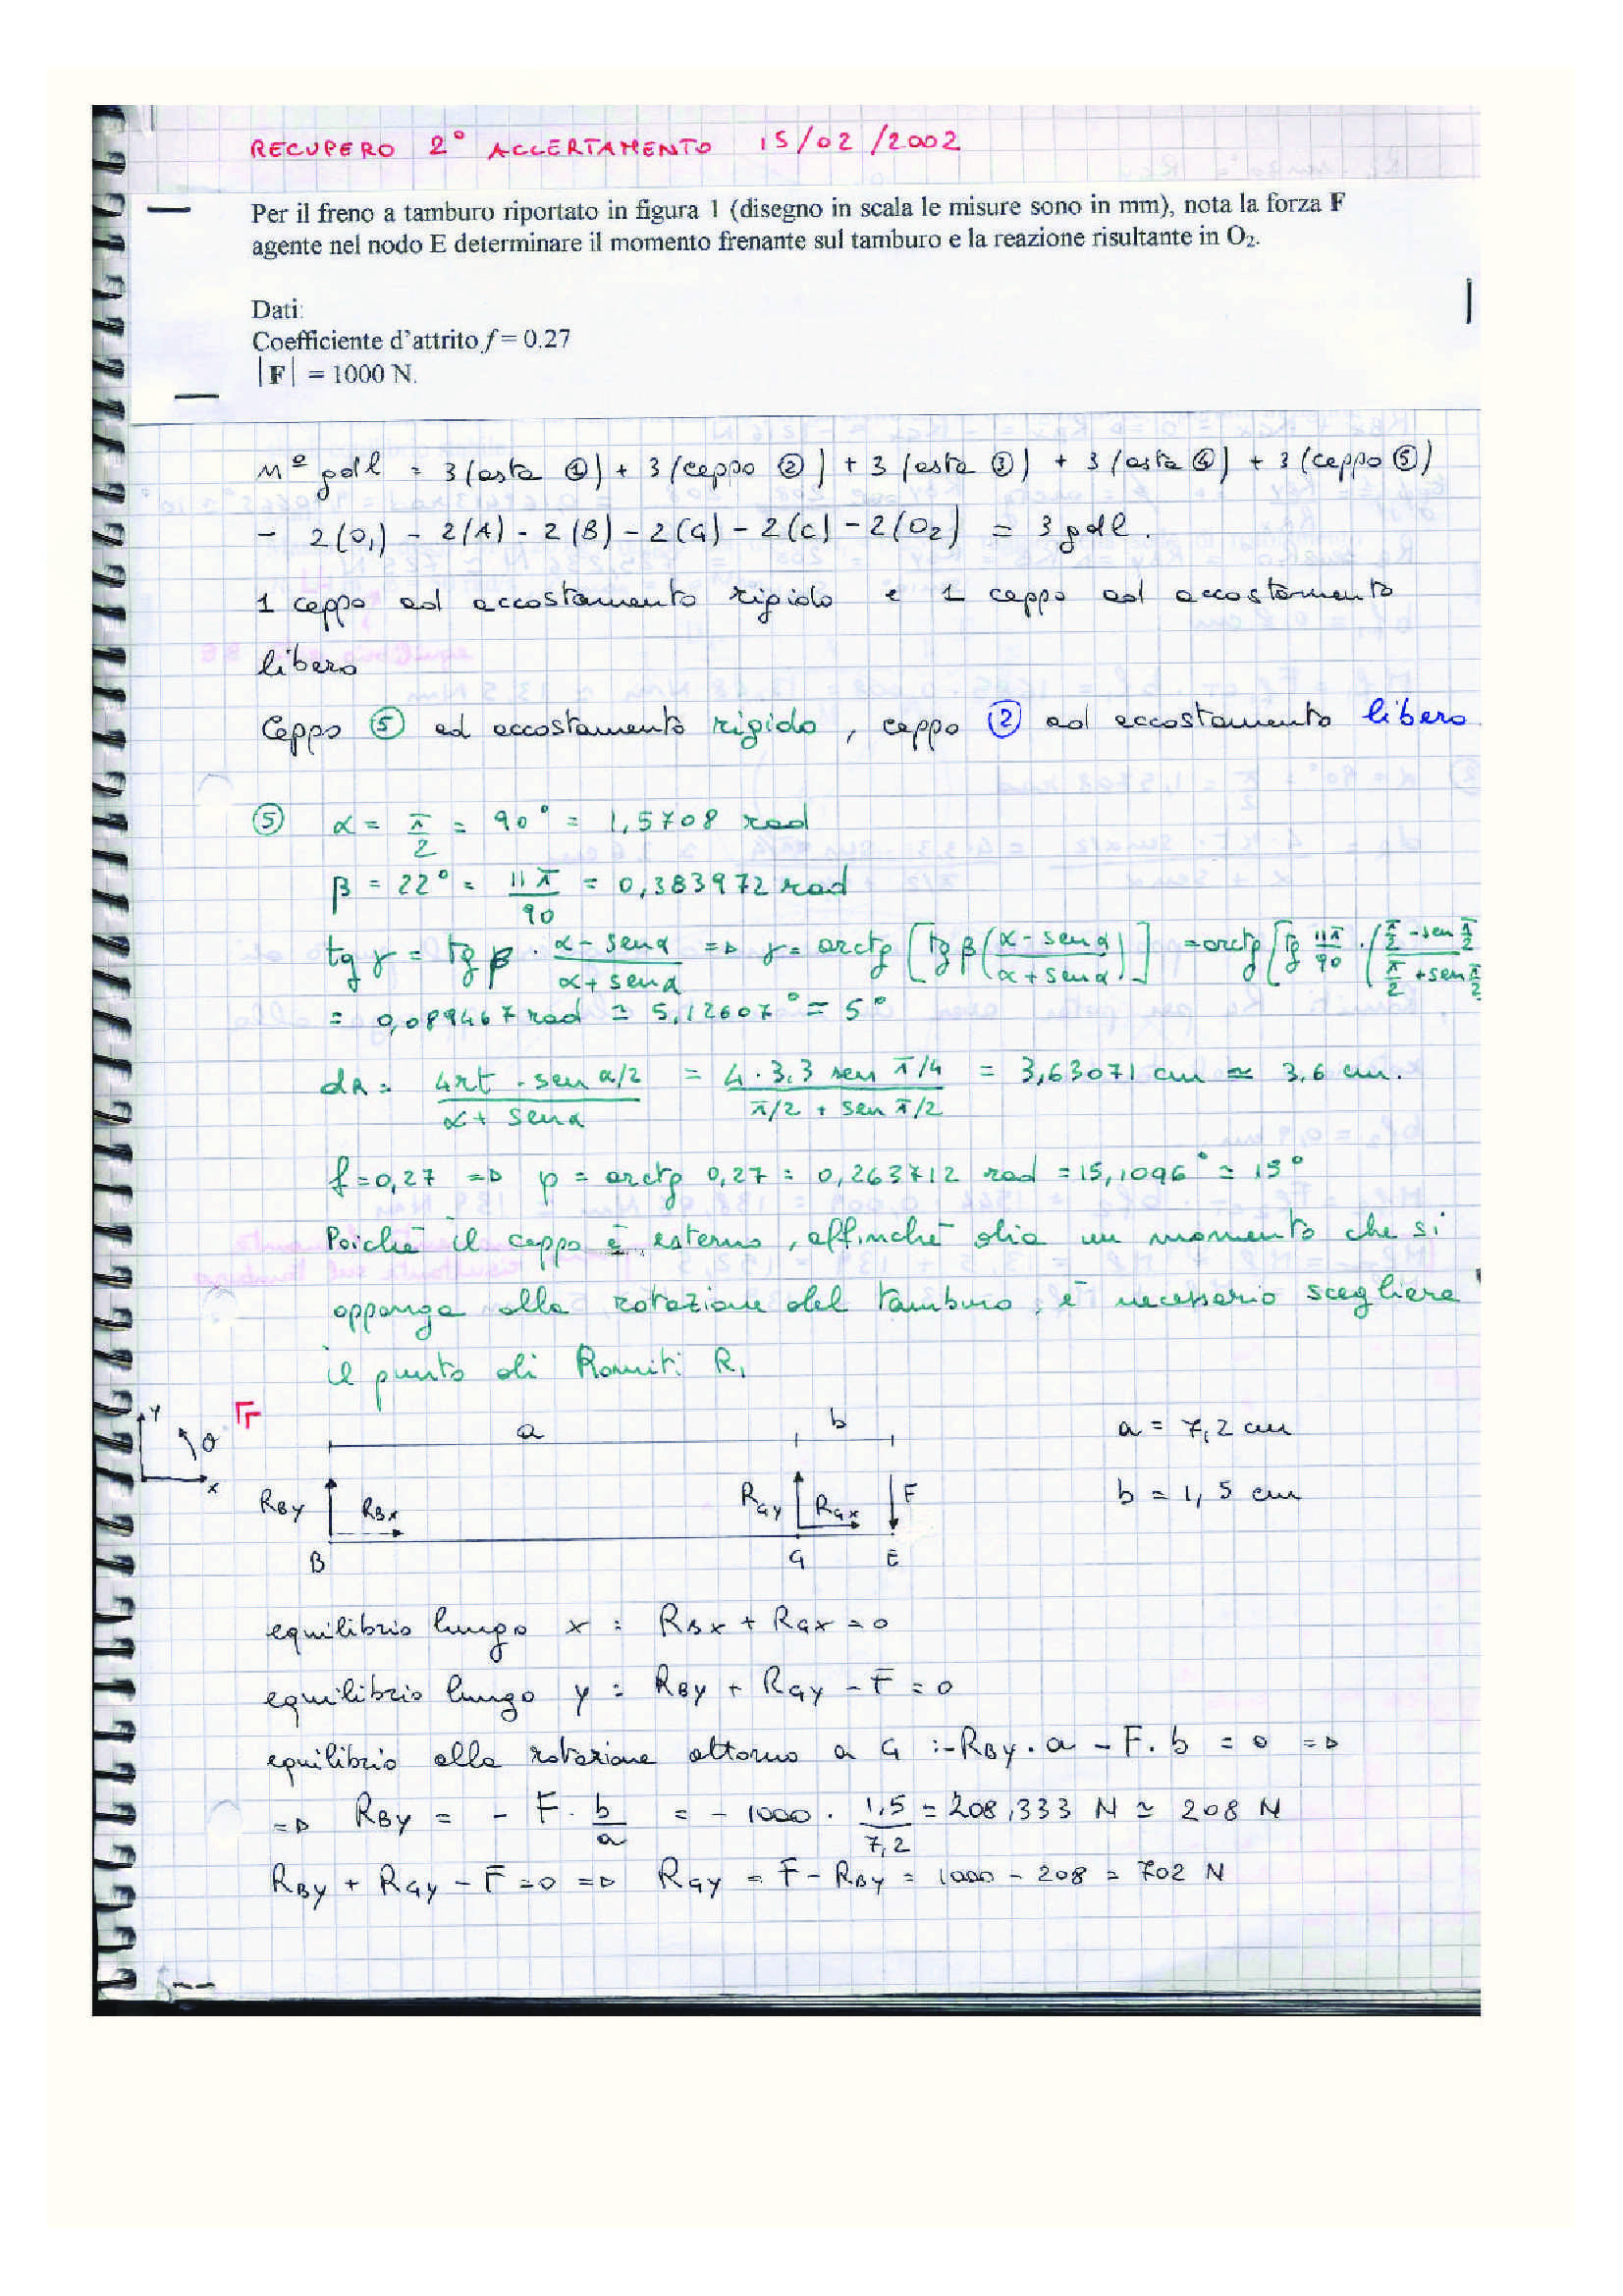 RECUPERO 2° ACCERTAMENTO 15/02/2002
Per il freno a tamburo riportato in figura 1 (disegno in scala le misure sono in mm), nota la forza F
agente nel nodo E determinare il momento frenante sul tamburo e la reazione risultante in O₂.
Dati:
Coefficiente d'attrito f = 0.27
|F| = 1000 N.
N° gdl = 3 (asta ①) + 3 (ceppo ②) + 3 (asta ③) + 3 (asta ④) + 3 (ceppo ⑤)
- 2(O₁) - 2(A) - 2(B) - 2(G) - 2(C) - 2(O₂) = 3 gdl.
1 ceppo ad accostamento rigido e 1 ceppo ad accostamento
libero
Ceppo ⑤ ad accostamento rigido, ceppo ② ad accostamento libero
⑤ α = π/2 = 90° = 1,5708 rad
β = 22° = 11π/90 = 0,383972 rad
tg γ = tg β · (α - sen α)/(α + sen α) => γ = arctg [tg β ((α - sen α)/(α + sen α))] = arctg [tg 11π/90 · (π/2 - sen π/2)/(π/2 + sen π/2)
= 0,089467 rad ≃ 5,12607° ≃ 5°
dR = 4rt · sen α/2 / (α + sen α) = 4 · 3,3 sen π/4 / (π/2 + sen π/2) = 3,63071 cm ≃ 3,6 cm.
f = 0,27 => φ = arctg 0,27 = 0,263712 rad = 15,1096° ≃ 15°
Poichè il ceppo è esterno, affinchè dia un momento che si
opponga alla rotazione del tamburo, è necessario scegliere
il punto di Romiti R₁
Y θ x
a b
a = 7,2 cm
RBY RBX RGY RGX F
b = 1,5 cm
B G E
equilibrio lungo x : RBX + RGX = 0
equilibrio lungo y : RBY + RGY - F = 0
equilibrio alla rotazione attorno a G : -RBY · a - F · b = 0 =>
=> RBY = - F · b/a = - 1000 · 1,5/7,2 = 208,333 N ≃ 208 N
RBY + RGY - F = 0 => RGY = F - RBY = 1000 - 208 = 702 N